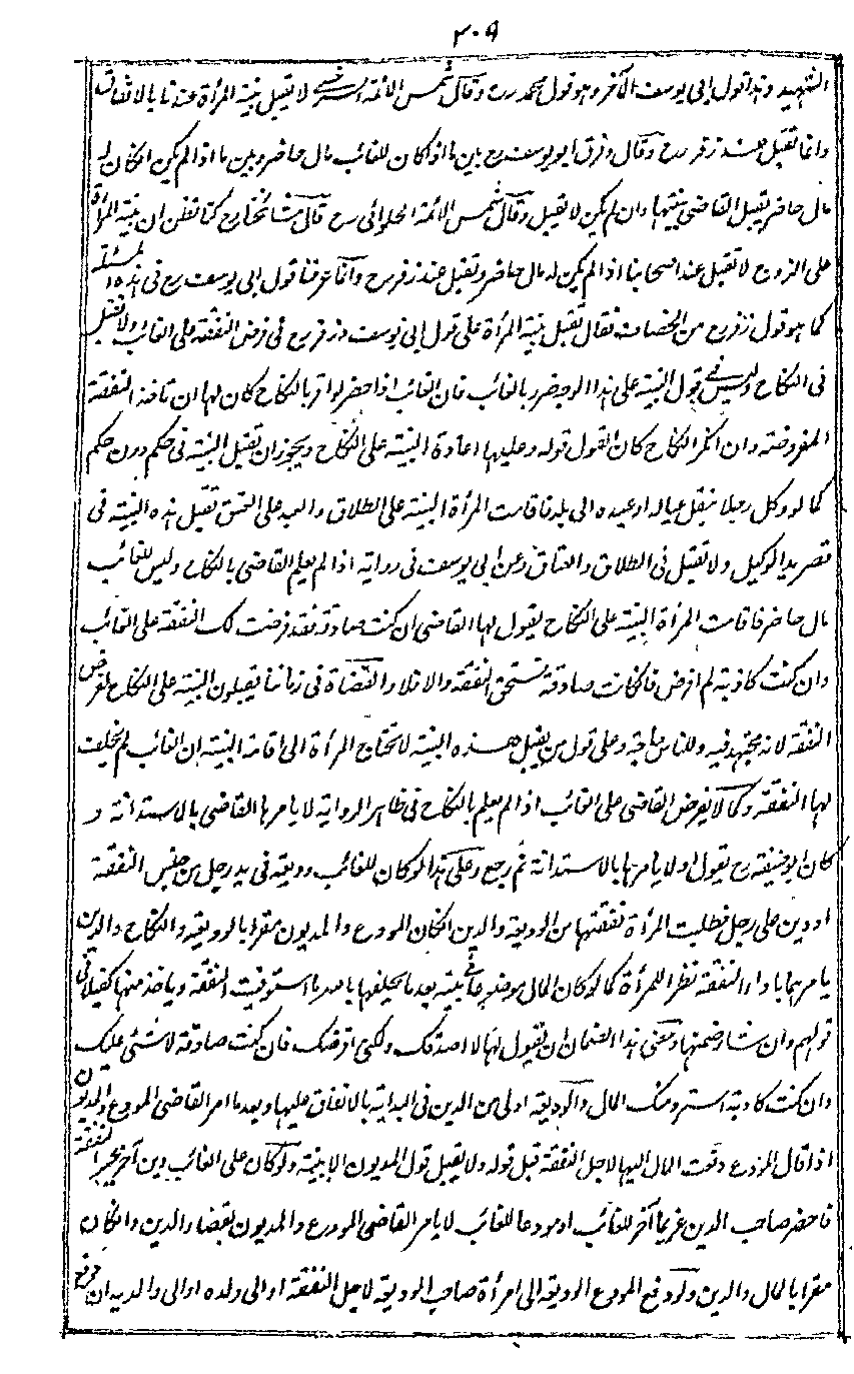 ٢٠٩
الشهيد وهذا قول ابى يوسف الآخر وهو قول محمد رح وقال شمس الائمة السرخسى لا تقبل بينة المرأة عندنا بالاتفاق
وانما تقبل عند زفر رح وقال وفرق ابو يوسف رح بين ما اذا كان للغائب مال حاضر وبين ما اذا لم يكن ان كان له
مال حاضر يقبل القاضى بينتها وان لم يكن لا تقبل وقال شمس الائمة الحلوائى رح قال مشائخنا رح كنا نظن ان بينة المرأة
على الزوج لا تقبل عند اصحابنا اذا لم يكن له مال حاضر وتقبل عند زفر رح وانا عرفنا قول ابى يوسف رح فى هذه المسئلة
كما هو قول زفر رح من الخصاف فقال تقبل بينة المرأة على قول ابى يوسف وزفر رح فى فرض النفقة على الغائب ولا تقبل
فى النكاح وليس فى قبول البينة على هذا الوجه ضرر بالغائب فان الغائب اذا حضر لو اقر بالنكاح كان لها ان تاخذ النفقة
المفروضة وان انكر النكاح كان القول قوله وعليها اعادة البينة على النكاح ويجوز ان تقبل البينة فى حكم دون حكم
كما لو وكل رجلا بنقل عياله او عبده الى بلد فاقامت المرأة البينة على الطلاق والعبد على العتق تقبل هذه البينة فى
قصر يد الوكيل ولا تقبل فى الطلاق والعتاق وعن ابى يوسف فى رواية اذا لم يعلم القاضى بالنكاح وليس للغائب
مال حاضر فاقامت المرأة البينة على النكاح يقول لها القاضى ان كنت صادقة فقد فرضت لك النفقة على الغائب
وان كنت كاذبة لم افرض فان كانت صادقة تستحق النفقة والا فلا والقضاة فى زماننا يقبلون البينة على النكاح لفرض
النفقة لانه مجتهد فيه وللناس حاجة وعلى قول من يقبل هذه البينة لا تحتاج المرأة الى اقامة البينة ان الغائب لم يخلف
لها النفقة وكما لا يفرض القاضى على الغائب اذا لم يعلم بالنكاح فى ظاهر الرواية لا يامرها القاضى بالاستدانة و
كان ابو حنيفة رح يقول اولا يامرها بالاستدانة ثم رجع وعلى هذا لو كان للغائب وديعة فى يد رجل من جنس النفقة
او دين على رجل فطلبت المرأة نفقتها من الوديعة والدين ان كان المودع والمديون مقرا بالوديعة والنكاح والدين
يامرهما باداء النفقة نظرا للمرأة كما لو كان المال موضوعا فى بيته بعد ما يحلفها بالله ما استوفيت النفقة وياخذ منها كفيلا فى
قولهم وان شاء ضمنها ومعنى هذا الضمان ان يقول لها لا اصدقك ولكن اقرضك فان كنت صادقة لا شئ عليك
وان كنت كاذبة استرد منك المال والوديعة اولى من الدين فى البداية بالانفاق عليها وبعد ما امر القاضى المودع والمديون
اذا قال المودع دفعت المال اليها لاجل النفقة قبل قوله ولا يقبل قول المديون الا ببينة ولو كان على الغائب دين آخر غير النفقة
فاحضر صاحب الدين غريما آخر للغائب او مودعا للغائب لا يامر القاضى المودع والمديون بقضاء الدين وان كان
مقرا بالمال والدين ولو دفع المودع الوديعة الى امرأة صاحب الوديعة لاجل النفقة او الى ولده او الى والديه ان دفع